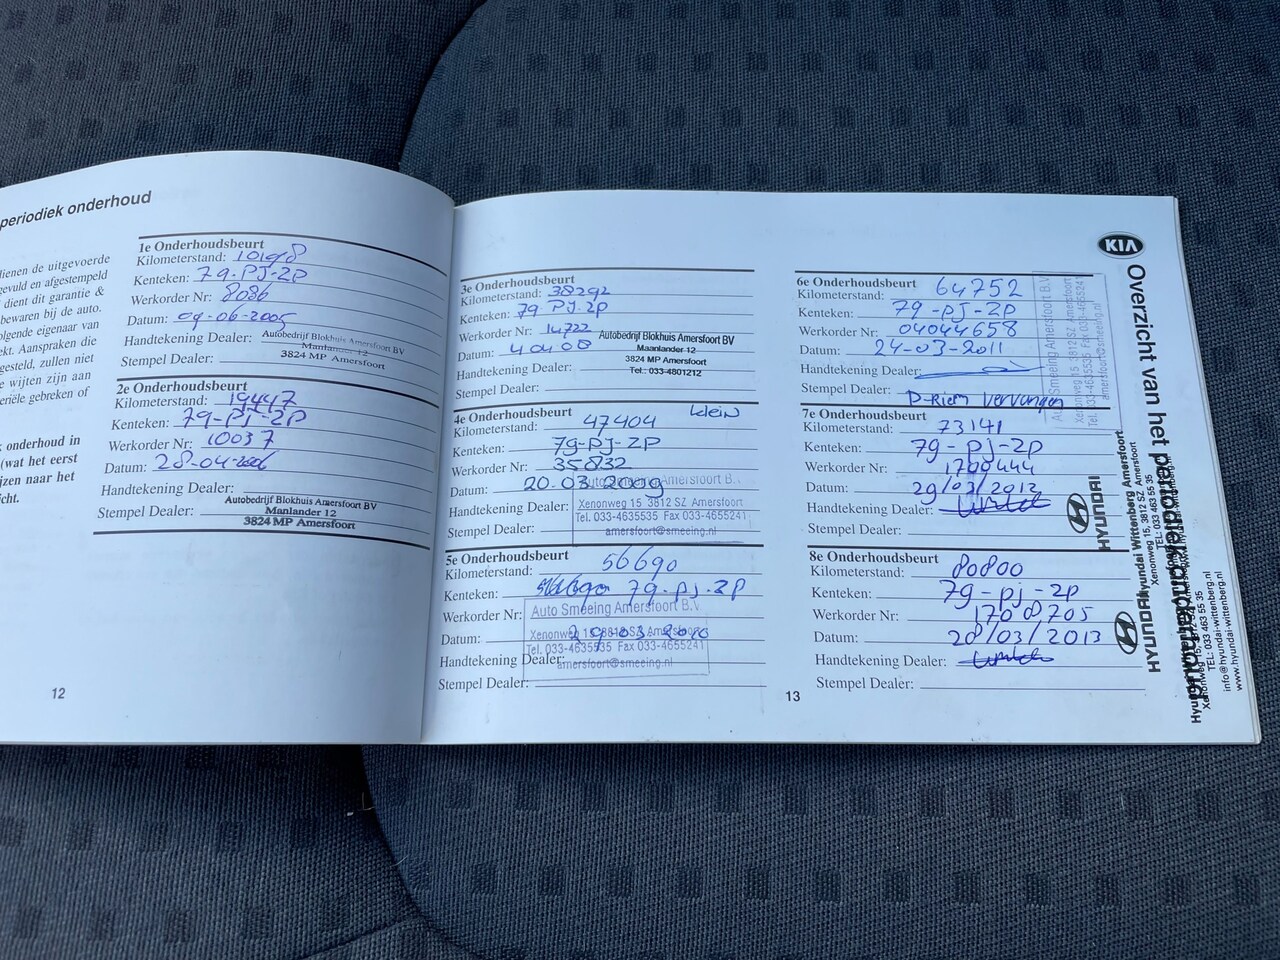 periodiek onderhoud
dienen de uitgevoerde
gevuld en afgestempeld
dient dit garantie &
bewaren bij de auto.
olgende eigenaar van
ekt. Aanspraken die
gesteld, zullen niet
e wijten zijn aan
eriële gebreken of
k onderhoud in
(wat het eerst
jzen naar het
icht.
1e Onderhoudsbeurt
Kilometerstand: 10198
Kenteken: 79-PJ-2P
Werkorder Nr: 8086
Datum: 09-06-2005
Handtekening Dealer:
Stempel Dealer:
Autobedrijf Blokhuis Amersfoort BV
Manlander 12
3824 MP Amersfoort
2e Onderhoudsbeurt
Kilometerstand: 19447
Kenteken: 79-PJ-2P
Werkorder Nr: 10037
Datum: 28-04-2006
Handtekening Dealer:
Stempel Dealer:
Autobedrijf Blokhuis Amersfoort BV
Manlander 12
3824 MP Amersfoort
12
3e Onderhoudsbeurt
Kilometerstand: 38292
Kenteken: 79 PJ.2P
Werkorder Nr: 14722
Datum: 4 04 08
Handtekening Dealer:
Stempel Dealer:
Autobedrijf Blokhuis Amersfoort BV
Maanlander 12
3824 MP Amersfoort
Tel.: 033-4801212
4e Onderhoudsbeurt klein
Kilometerstand: 47404
Kenteken: 79-PJ-2P
Werkorder Nr: 35832
Datum: 20.03.2009
Handtekening Dealer:
Stempel Dealer:
Auto Smeeing Amersfoort B.V.
Xenonweg 15 3812 SZ Amersfoort
Tel. 033-4635535 Fax 033-4655241
amersfoort@smeeing.nl
5e Onderhoudsbeurt
Kilometerstand: 56690
Kenteken: 79-PJ-2P
Werkorder Nr:
Datum: 29.03.2010
Handtekening Dealer:
Stempel Dealer:
Auto Smeeing Amersfoort B.V.
Xenonweg 15 3812 SZ Amersfoort
Tel. 033-4635535 Fax 033-4655241
amersfoort@smeeing.nl
13
6e Onderhoudsbeurt
Kilometerstand: 64752
Kenteken: 79-PJ-2P
Werkorder Nr: 04044658
Datum: 24-03-2011
Handtekening Dealer:
Stempel Dealer:
D-Riem vervangen
Auto Smeeing Amersfoort B.V.
Xenonweg 15 3812 SZ Amersfoort
Tel. 033-4635535 Fax 033-4655241
amersfoort@smeeing.nl
7e Onderhoudsbeurt
Kilometerstand: 73141
Kenteken: 79-PJ-2P
Werkorder Nr: 1700444
Datum: 29/03/2012
Handtekening Dealer:
Stempel Dealer:
HYUNDAI
Hyundai Wittenberg Amersfoort
Xenonweg 15, 3812 SZ Amersfoort
TEL: 033 463 55 35
8e Onderhoudsbeurt
Kilometerstand: 80800
Kenteken: 79-PJ-2P
Werkorder Nr: 1708705
Datum: 28/03/2013
Handtekening Dealer:
Stempel Dealer:
HYUNDAI
TEL: 033 463 55 35
info@hyundai-wittenberg.nl
www.hyundai-wittenberg.nl
KIA
Overzicht van het periodiek onderhoud